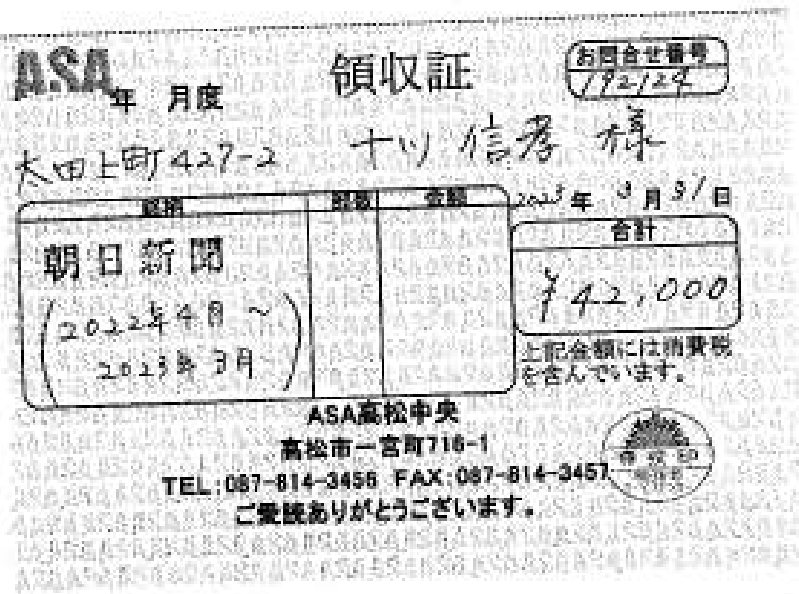 ASA 年 月度
領収証
お問合せ番号
192124
太田上町427-2
十川 信孝 様
2023年 3月31日
銘柄 部数 金額
朝日新聞
(2022年4月~
2023年3月)
合計
¥42,000
上記金額には消費税
を含んでいます。
ASA高松中央
高松市一宮町716-1
TEL:087-814-3456 FAX:087-814-3457
ご愛読ありがとうございます。